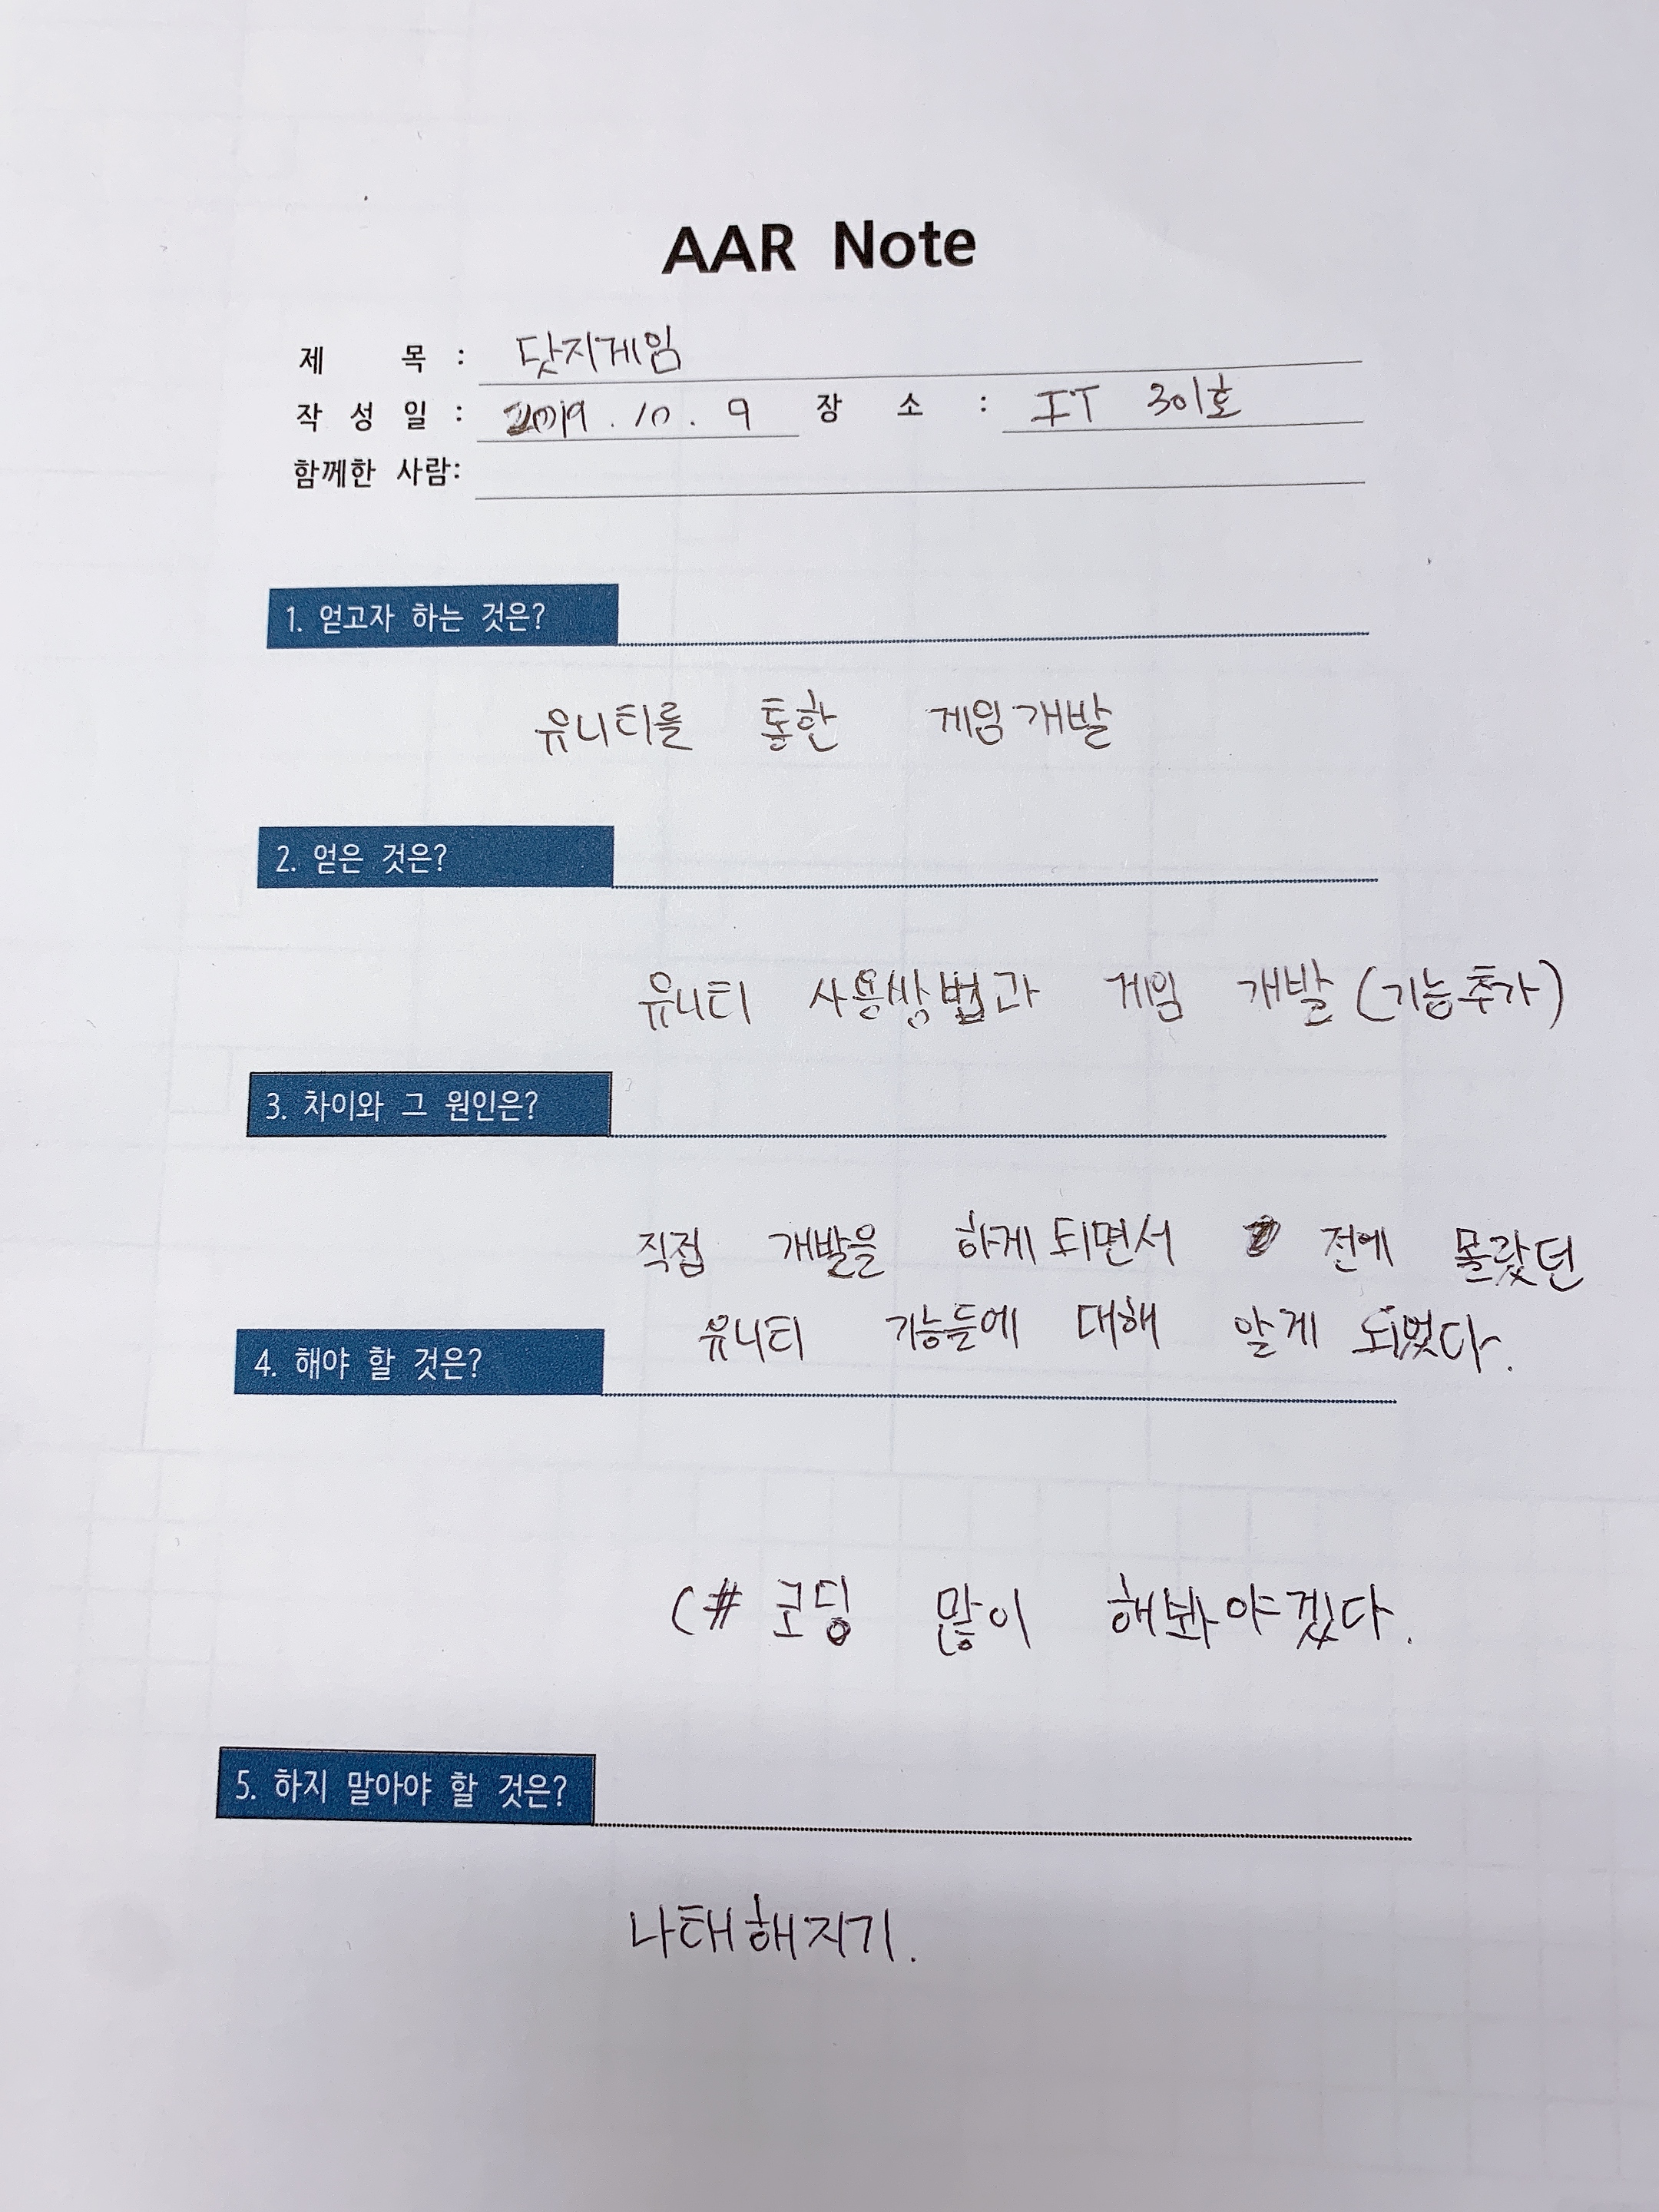 AAR Note
제 목 : 닷지게임
작 성 일 : 2019 . 10 . 9 장 소 : IT 301호
함께한 사람:
1. 얻고자 하는 것은?
유니티를 통한 게임개발
2. 얻은 것은?
유니티 사용방법과 게임 개발 (기능추가)
3. 차이와 그 원인은?
직접 개발을 하게되면서 전에 몰랐던
유니티 기능들에 대해 알게 되었다.
4. 해야 할 것은?
C# 코딩 많이 해봐야겠다.
5. 하지 말아야 할 것은?
나태해지기.